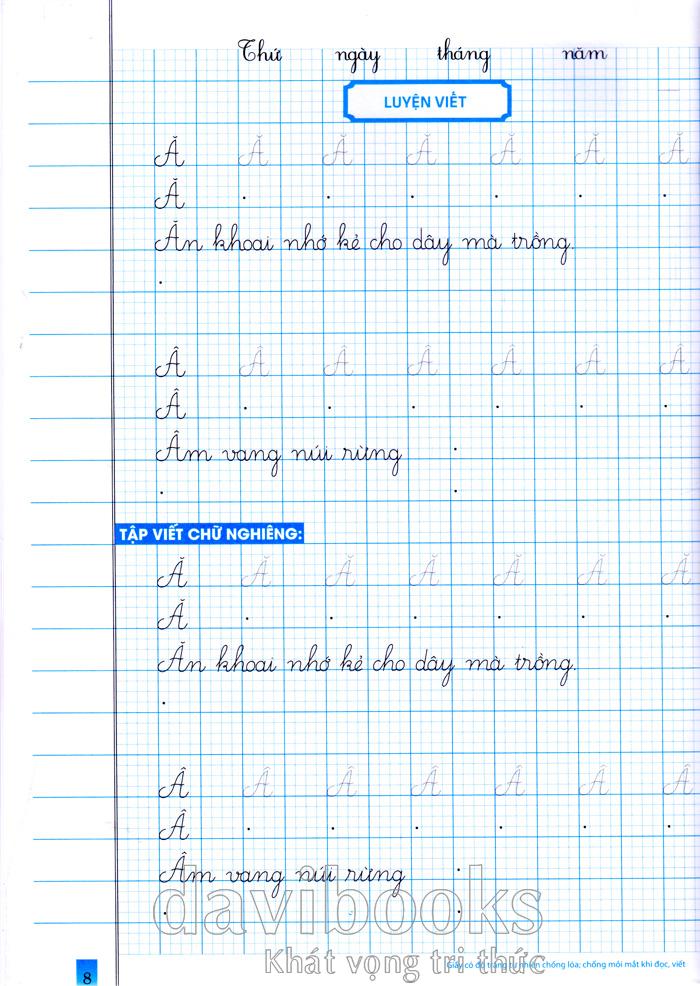 Thứ ngày tháng năm
LUYỆN VIẾT
Ă Ă Ă Ă Ă Ă Ă
Ă . . . . . .
Ăn khoai nhớ kẻ cho dây mà trồng.
.
Â Â Â Â Â Â Â
Â . . . . . .
Âm vang núi rừng .
. .
TẬP VIẾT CHỮ NGHIÊNG:
Ă Ă Ă Ă Ă Ă Ă
Ă . . . . . .
Ăn khoai nhớ kẻ cho dây mà trồng.
.
Â Â Â Â Â Â Â
Â . . . . . .
Âm vang núi rừng .
. .
davibooks
Khát vọng tri thức
Giấy có độ trắng tự nhiên chống lóa, chống mỏi mắt khi đọc, viết
8